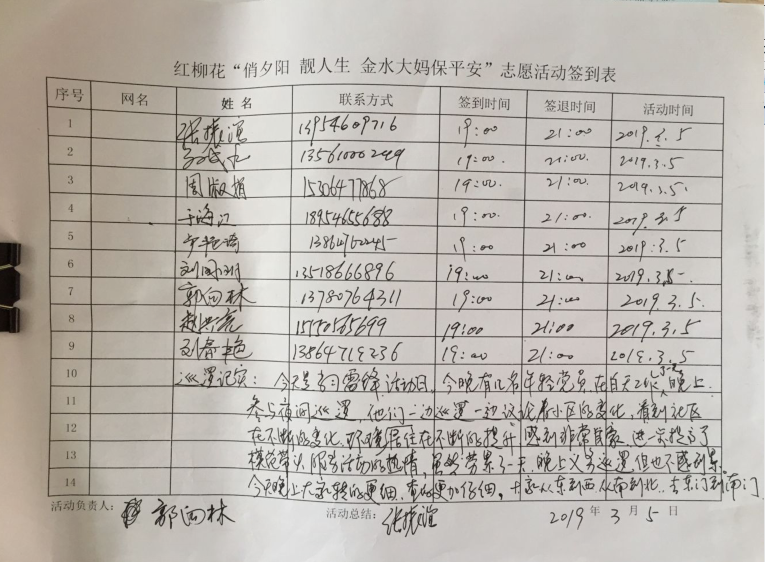 红柳花“俏夕阳 靓人生 金水大妈保平安”志愿活动签到表
序号 网名 姓名 联系方式 签到时间 签退时间 活动时间
1 张 13954609716 19:00 21:00 2019.3.5
2 19:00. 21:00. 2019.3.5
3 周淑娟 15306477868 19:00. 21:00 2019.3.5.
4 于海江 18954655688 19:00 21:00. 2019.3.5
5 19:00 21:00 2019.3.5
6 刘 13518666896 19:00 21:00 2019.3.5
7 郭向林 13780764311 19:00 21:00 2019.3.5.
8 赵洪亮 19:00 21:00 2019.3.5
9 刘春艳 13864719236 19:00 21:00 2019.3.5
10 巡逻记实：今天是学习雷锋活动日，今晚有几名年轻党员，在白天 晚上
11 参与夜间巡逻，他们一边巡逻一边议论着小区的变化，看到社区
12 在不断的变化，环境居住在不断的提升，感到非常自豪，进一步提高了
13 模范带头，服务活动的热情，虽然劳累了一天，晚上义务巡逻，但也不感到累。
14 今天晚上大家转的更细，查的更加仔细。大家从东到西从南到北，去东门到南门
活动负责人： 郭向林 活动总结： 张 2019年3月5日